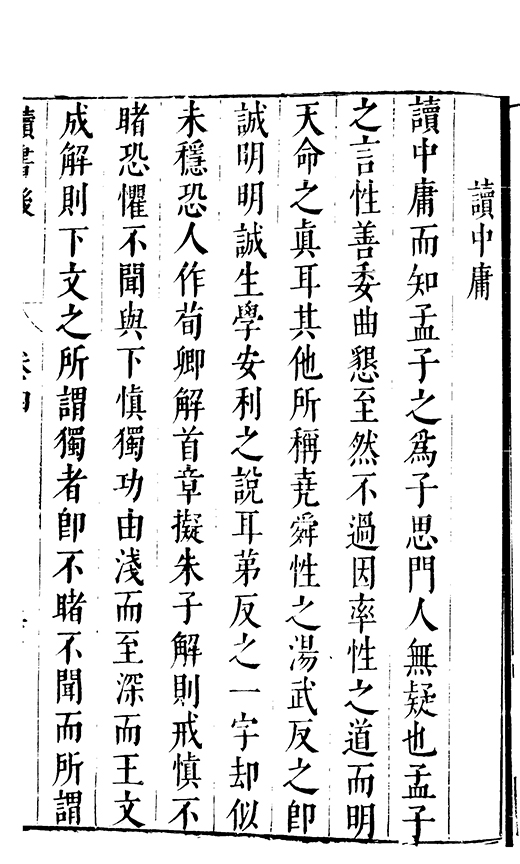 讀中庸
讀中庸而知孟子之爲子思門人無疑也孟子
之言性善委曲懇至然不過因率性之道而明
天命之眞耳其他所稱堯舜性之湯武反之卽
誠明明誠生學安利之說耳苐反之一字却似
未穩恐人作荀卿解首章擬朱子解則戒慎不
睹恐懼不聞與下慎獨功由淺而至深而王文
成解則下文之所謂獨者卽不睹不聞而所謂
讀書後